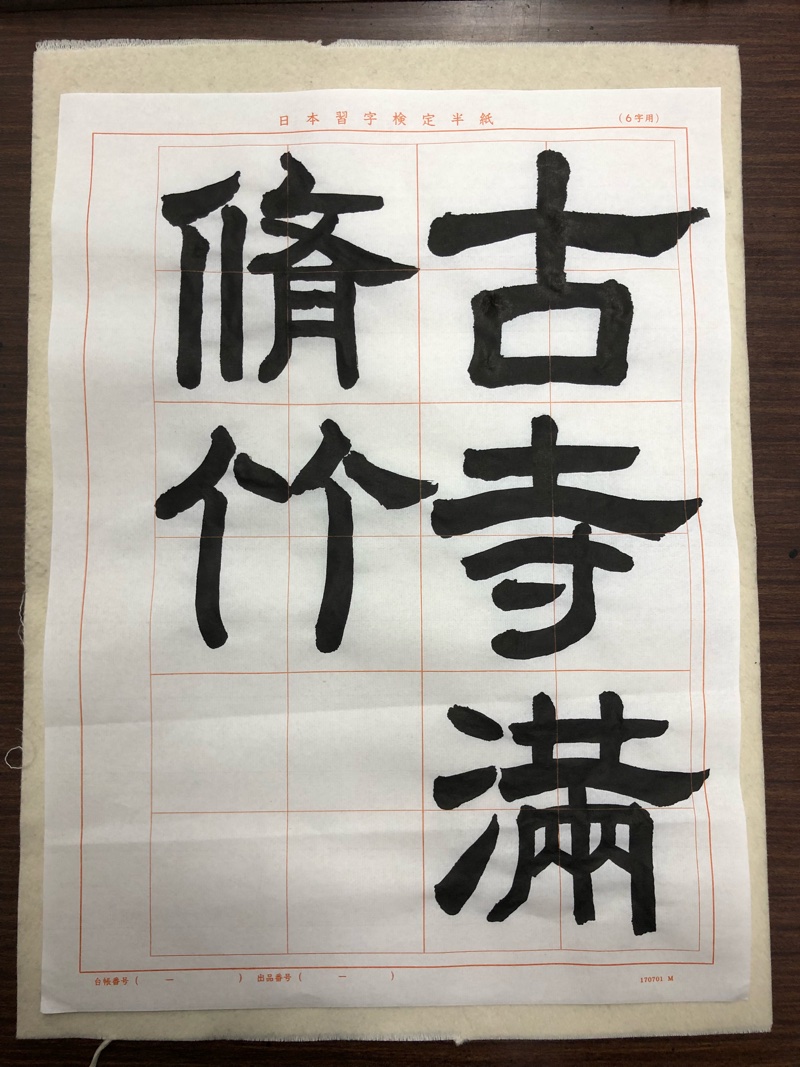 日本習字検定半紙
(6字用)
古寺滿
脩竹
台帳番号(　ー　) 出品番号(　ー　)
170701 M